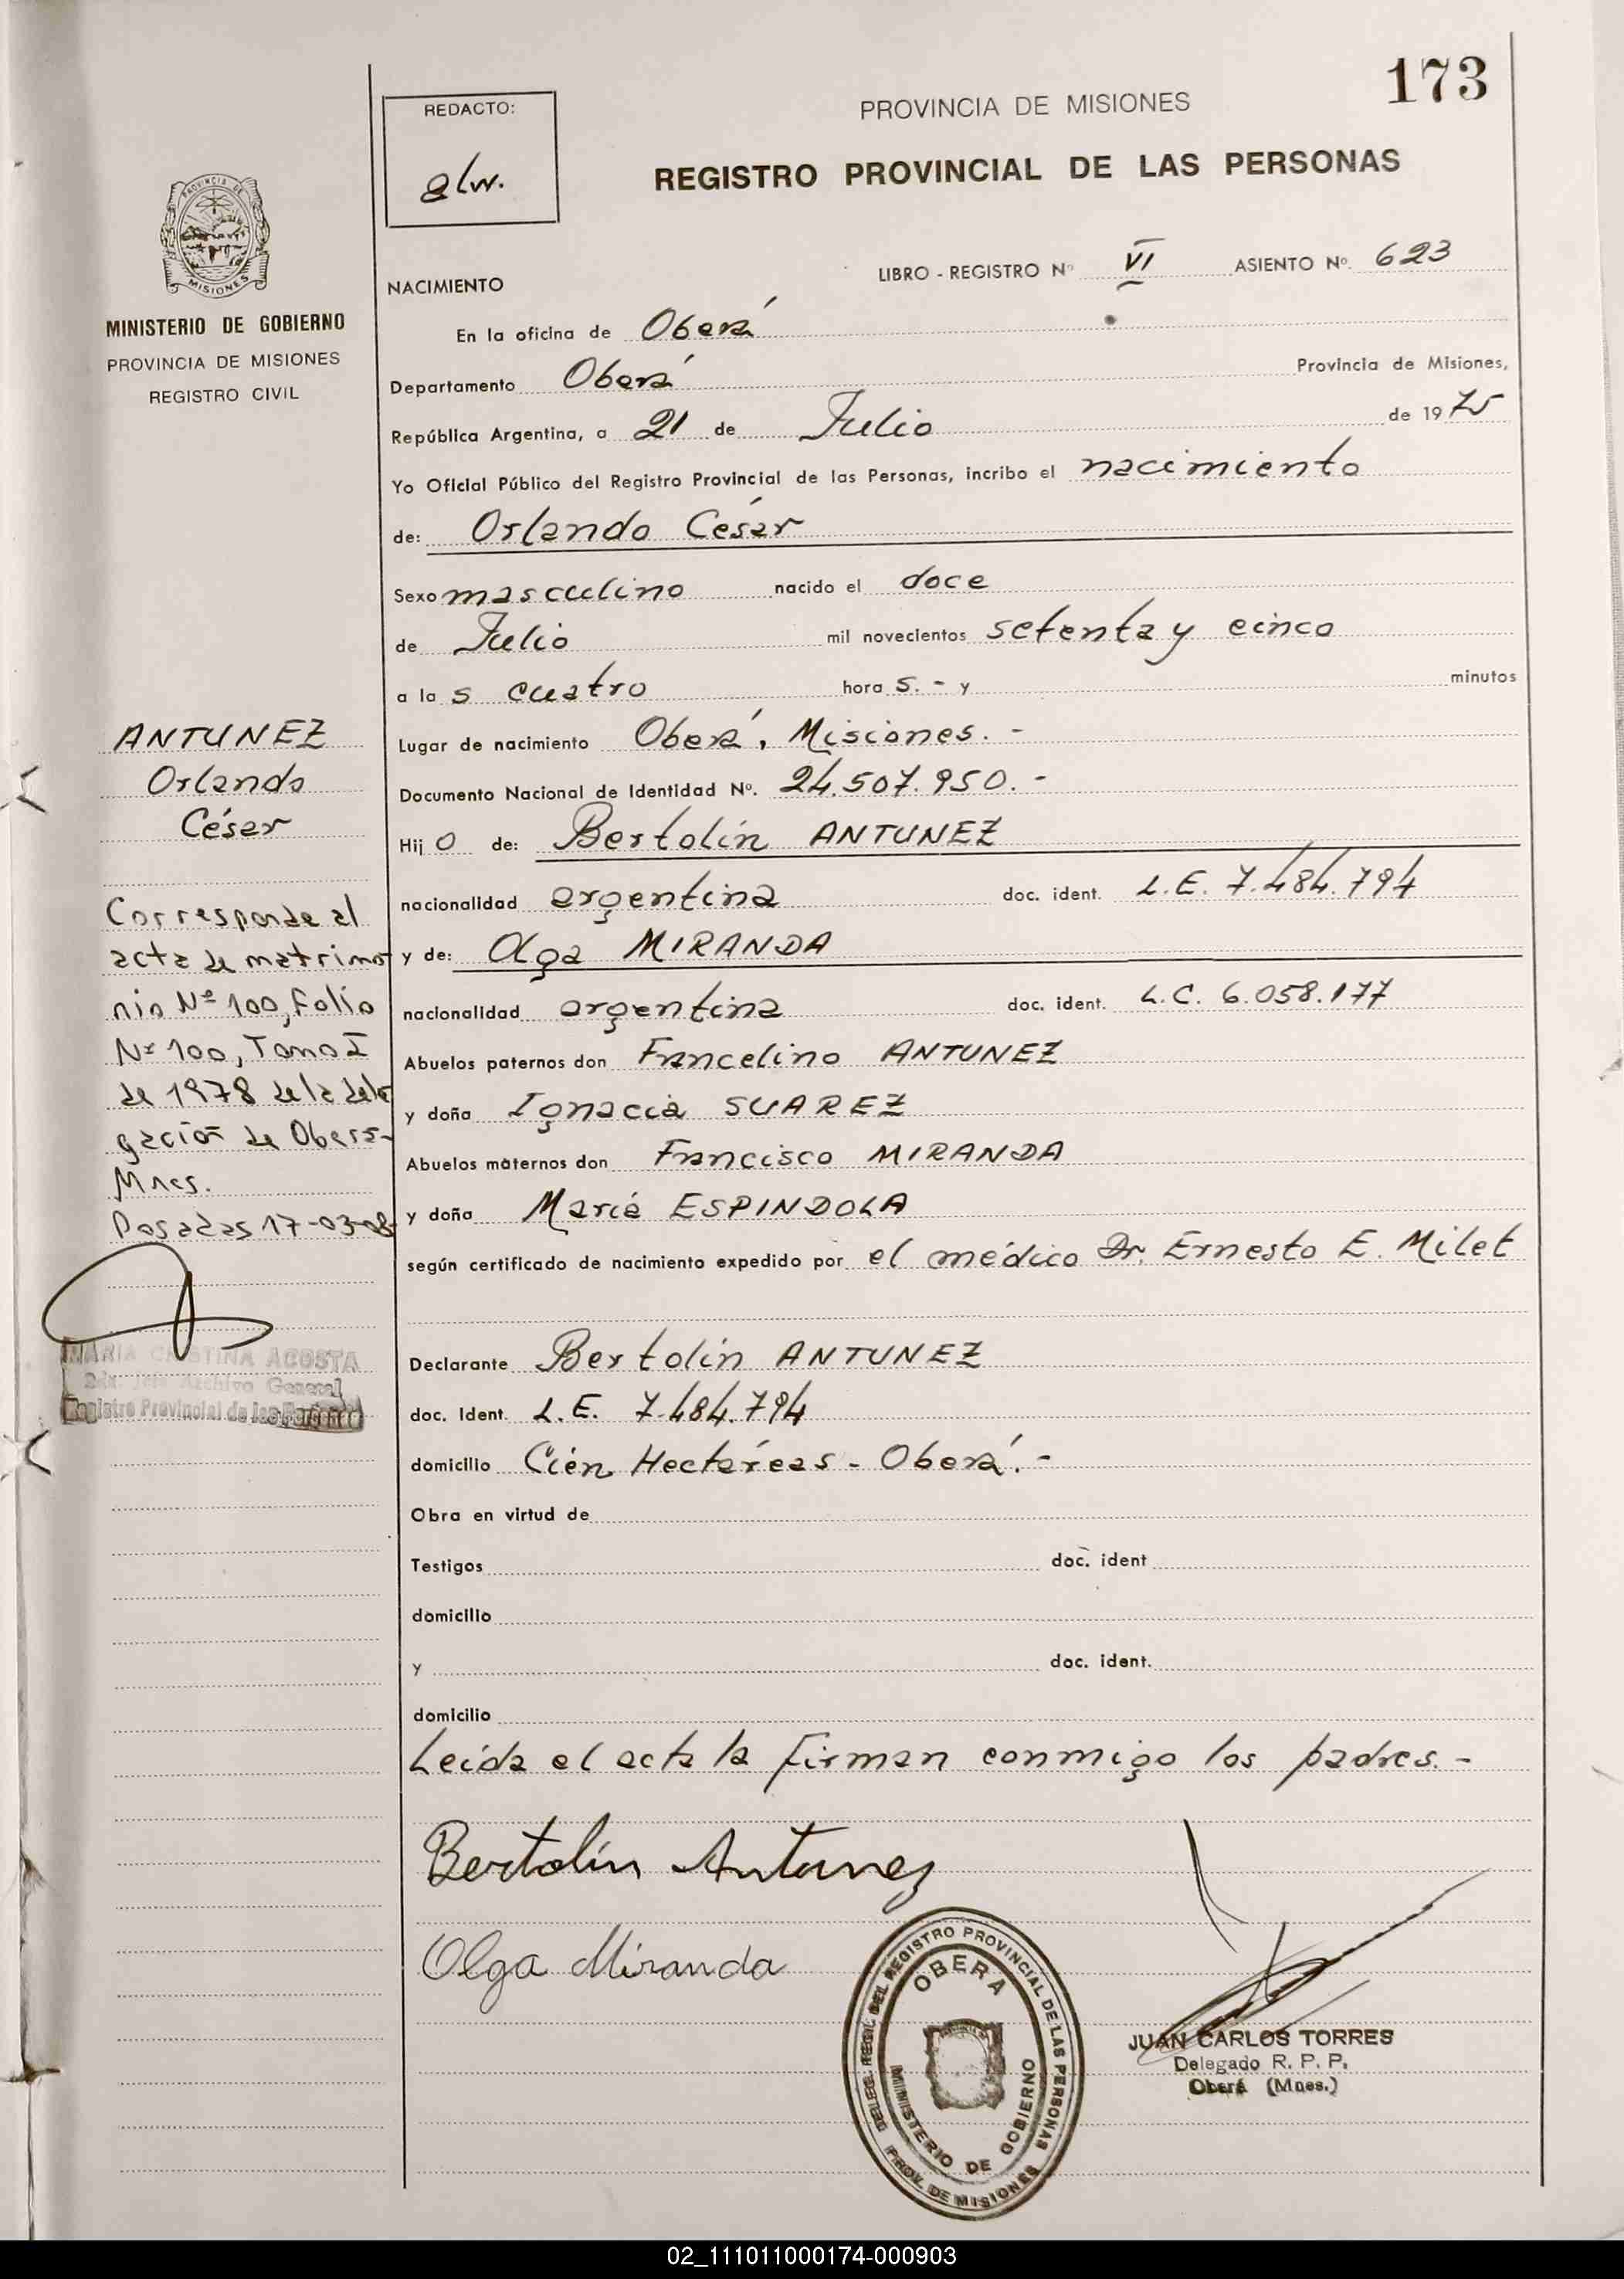 173
REDACTO:
alw.
PROVINCIA DE MISIONES
REGISTRO PROVINCIAL DE LAS PERSONAS
PROVINCIA DE
MISIONES
MINISTERIO DE GOBIERNO
PROVINCIA DE MISIONES
REGISTRO CIVIL
NACIMIENTO
LIBRO - REGISTRO Nº VI ASIENTO Nº. 623
En la oficina de Oberá
Departamento Oberá Provincia de Misiones,
República Argentina, a 21 de Julio de 1975
Yo Oficial Público del Registro Provincial de las Personas, incribo el nacimiento
de: Orlando César
Sexo masculino nacido el doce
de Julio mil novecientos setenta y cinco
a la s cuatro hora s.- y minutos
Lugar de nacimiento Oberá, Misiones.-
Documento Nacional de Identidad Nº. 24.507.950.-
Hij o de: Bertolín ANTUNEZ
nacionalidad argentina doc. ident. L.E. 7.484.794
y de: Olga MIRANDA
nacionalidad argentina doc. ident. L.C. 6.058.177
Abuelos paternos don Francelino ANTUNEZ
y doña Ignacia SUAREZ
Abuelos maternos don Francisco MIRANDA
y doña María ESPINDOLA
según certificado de nacimiento expedido por el médico Dr. Ernesto E. Milet
Declarante Bertolín ANTUNEZ
doc. Ident. L.E. 7.484.794
domicilio Cién Hectáreas - Oberá.-
Obra en virtud de
Testigos doc. ident
domicilio
y doc. ident.
domicilio
Leída el acta la firman conmigo los padres.-
Bertolín Antunez
Olga Miranda
ANTUNEZ
Orlando
César
Corresponde al
acta de matrimo
nio Nº 100, Folio
Nº 100, Tomo I
de 1978 de la dele
gación de Oberá-
Mnes.
Posadas 17-03-08
MARIA CRISTINA ACOSTA
Sda. Jefe Archivo General
Registro Provincial de las Personas
DELEG. REGIL DEL REGISTRO PROVINCIAL DE LAS PERSONAS
PROV. DE MISIONES
OBERA
MINISTERIO DE GOBIERNO
JUAN CARLOS TORRES
Delegado R. P. P.
Oberá (Mnes.)
02_111011000174-000903